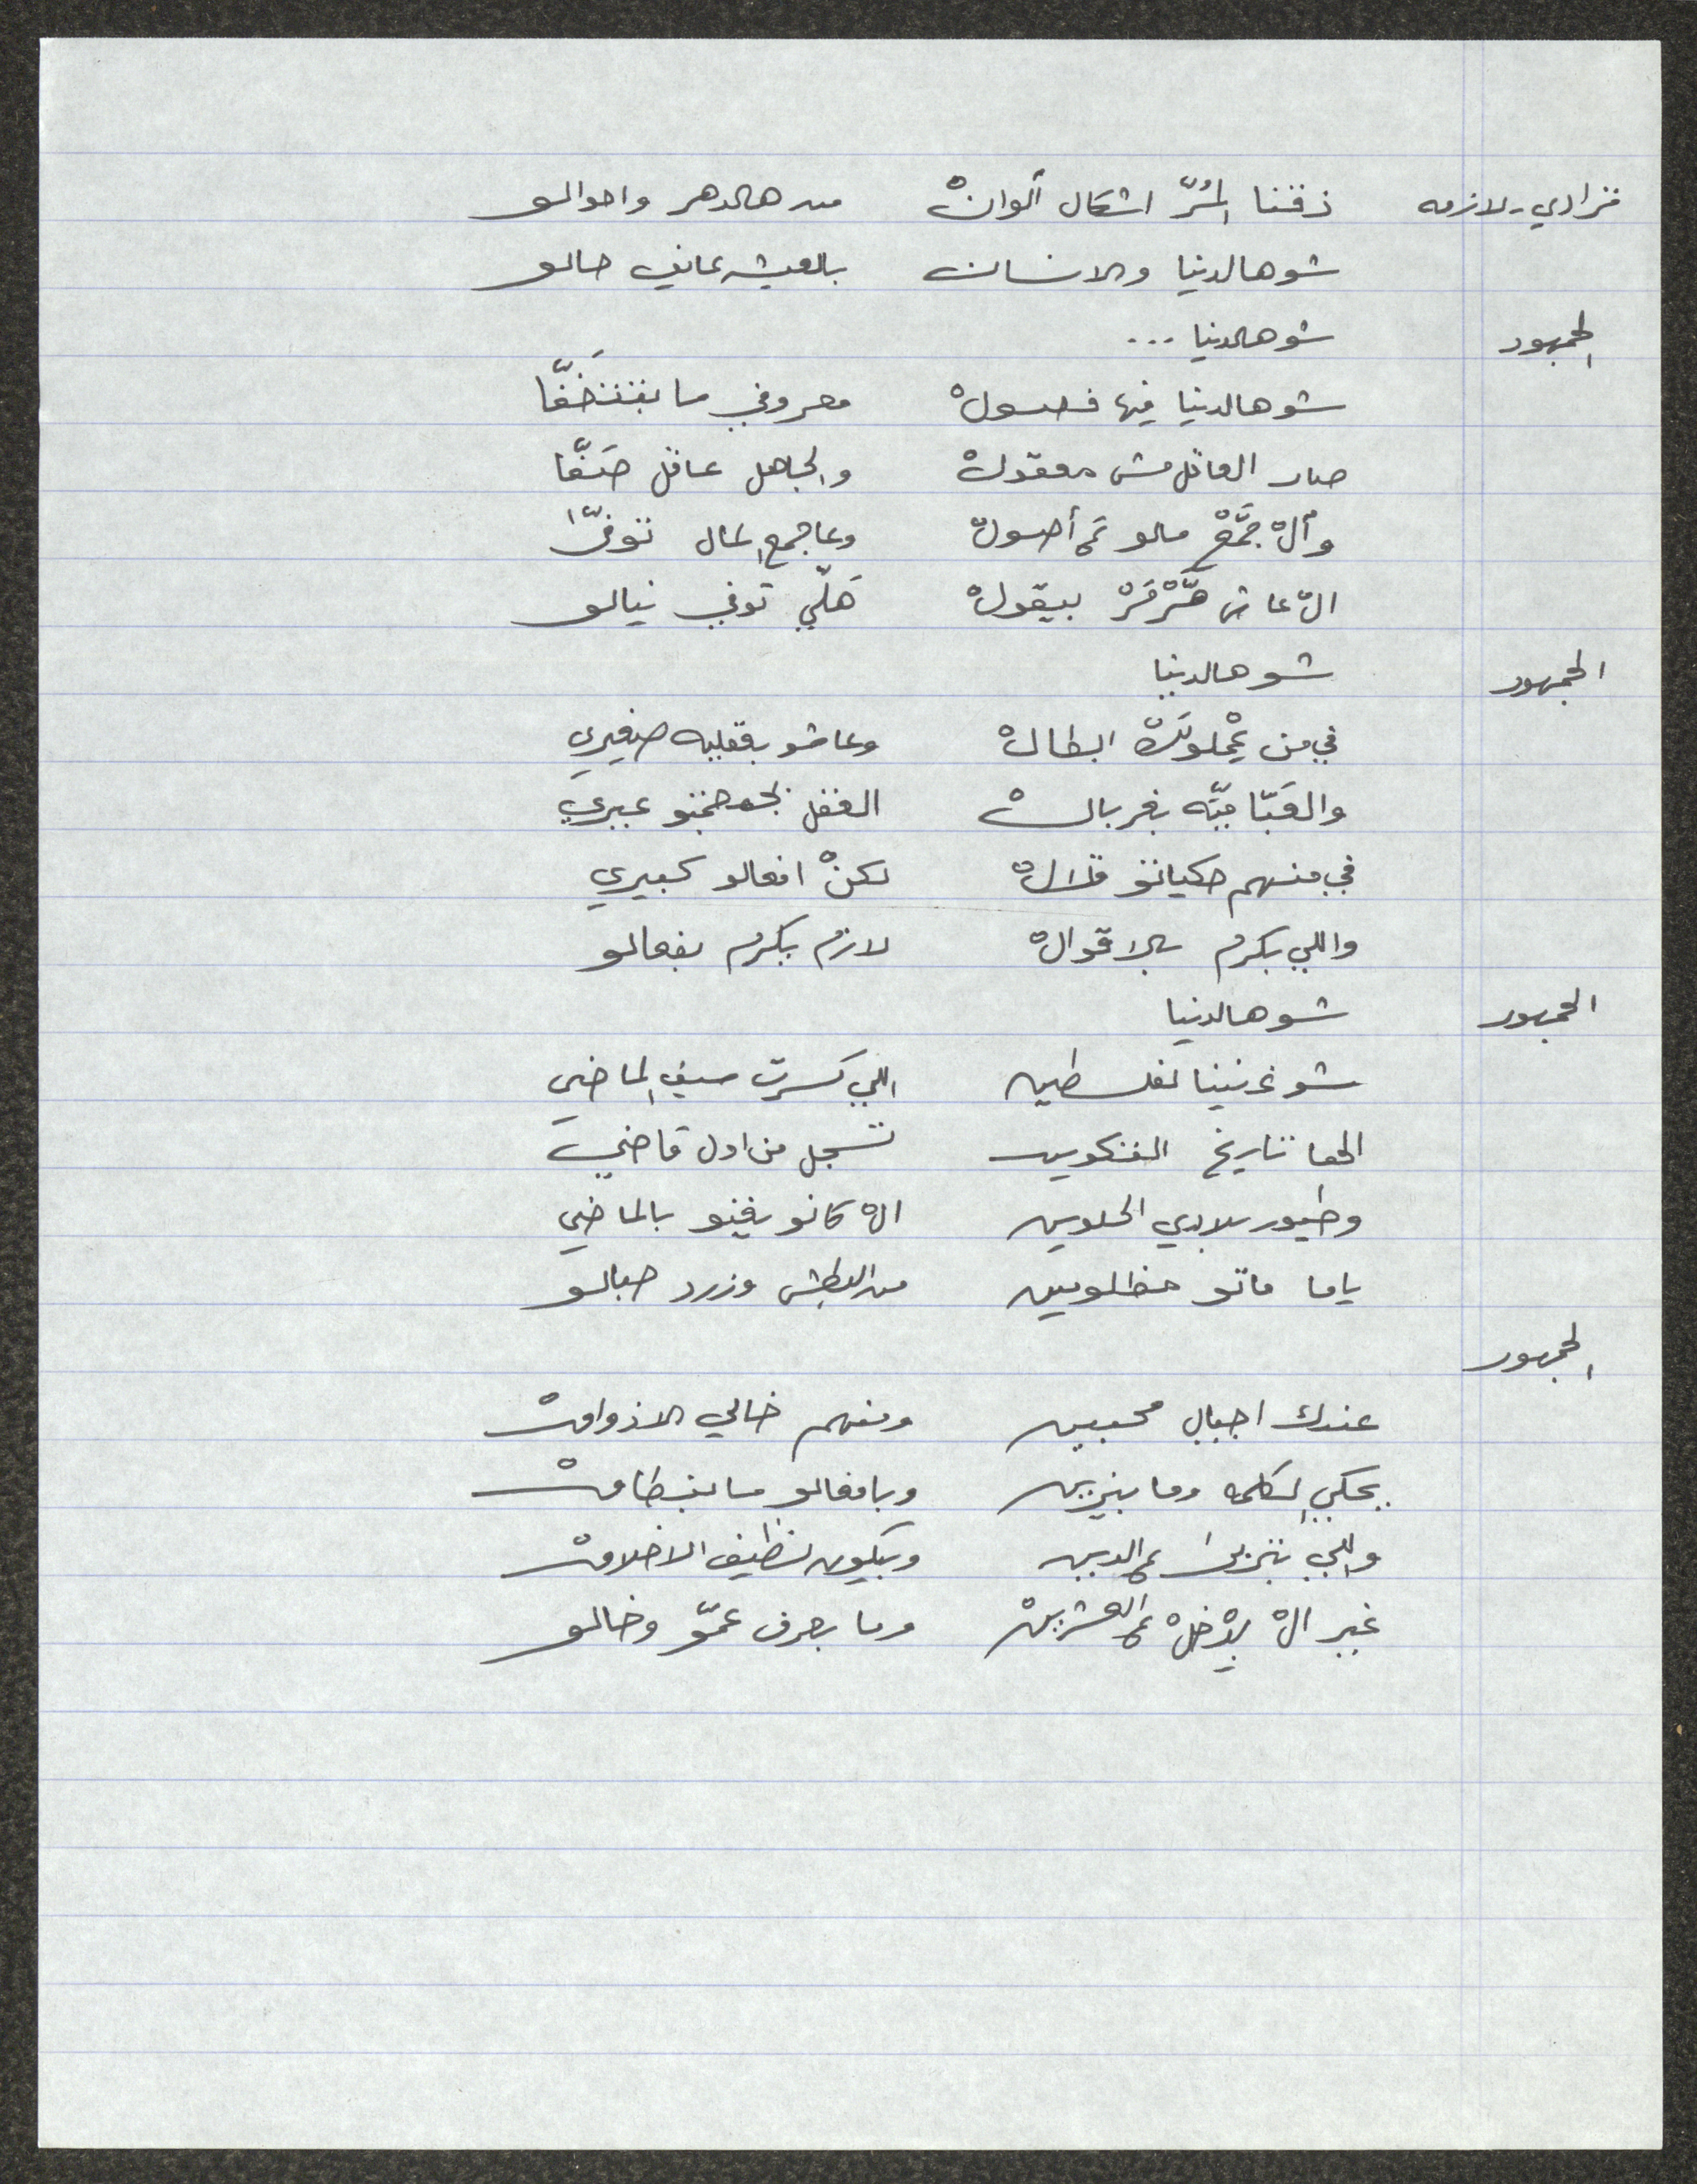 قرادي - لازمه ذقنا المُرّ اشكال ألوانْ من هالدهر واحوالو
شو هالدنيا والانسان بالعيشه عايف حالو
الجمهور شو هالدنيا ...
شو هالدنيا فيها فصولْ معروفي ما بتتخفّا
صار العاقل مش معقولْ والجاهل عاقل صَفّا
وألْ جَمَّعْ مالو عَ أصولْ وعا جمع المال توفّا
الْ عاش بيقولْ هَلّي توفي نيالو
الجمهور شو هالدنيا
في من البطالْ وعاشو بعقليه صغيري
بغربالْ العقل عبري
في منهم حكياتو قلالْ لكنْ افعالو كبيري
واللي بكرم بالاقوالْ لازم يكرم بفعالو
الجمهور شو هالدنيا
شو غنينا لفلسطين اللي كسرت سيف الماضي
الها تاريخ التكوين تسجل من اول قاضي
وطيور بلادي الحلوين الْ كانو يغنو بالماضي
ياما ماتو مظلومين من البطش وزرد حبالو
الجمهور
عندك اجيال محبين ومنهم خالي الاذواقْ
بحكي الكلمه وما بيزين وبافعالو ما بنطاقْ
واللي بتربى عالدين وبيكون نظيف الاخلاقْ
غير الْ بِدْخلْ عالعشرينْ وما بعرف عمّو وخالو